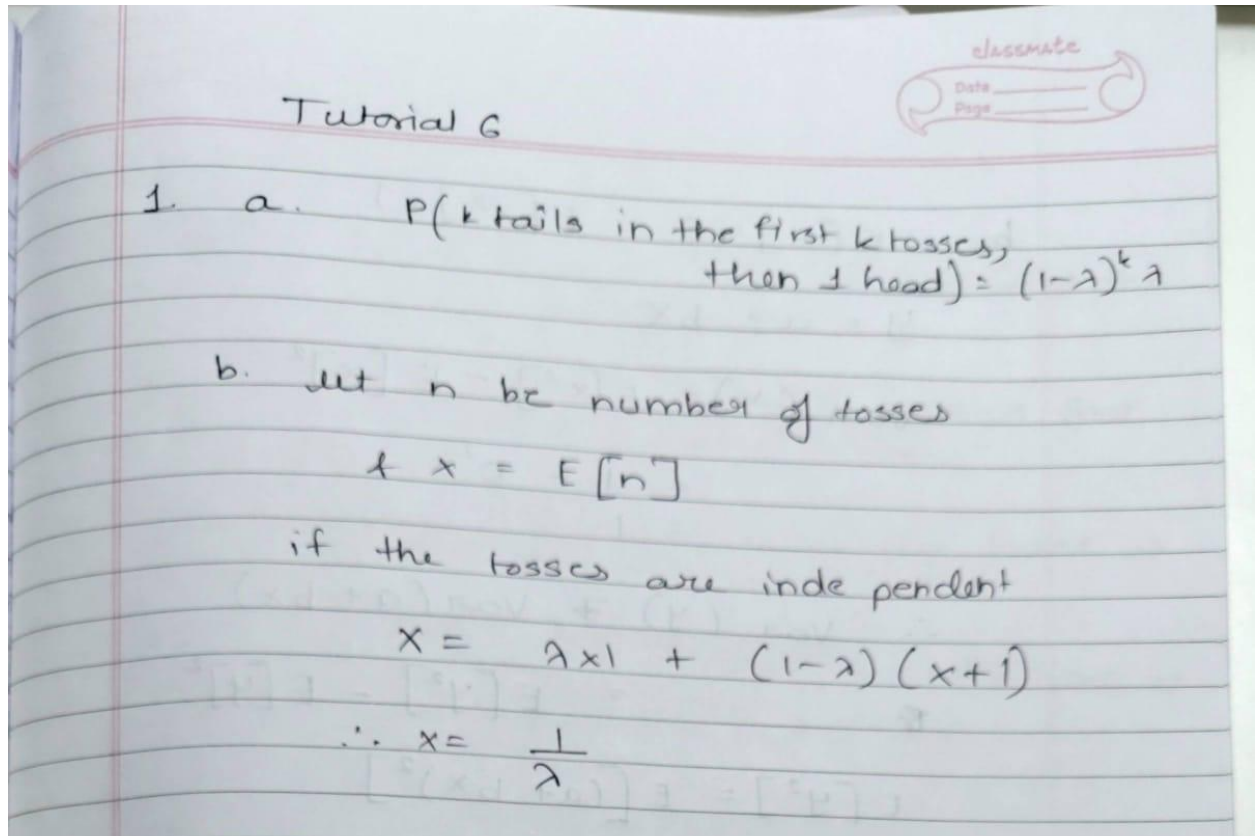 classmate
Date
Page
Tutorial 6
1. a. P(k tails in the first k tosses,
then 1 head) = (1-λ)^k λ
b. let n be number of tosses
& x = E[n]
if the tosses are inde pendent
x = λx1 + (1-λ)(x+1)
∴ x = 1/λ